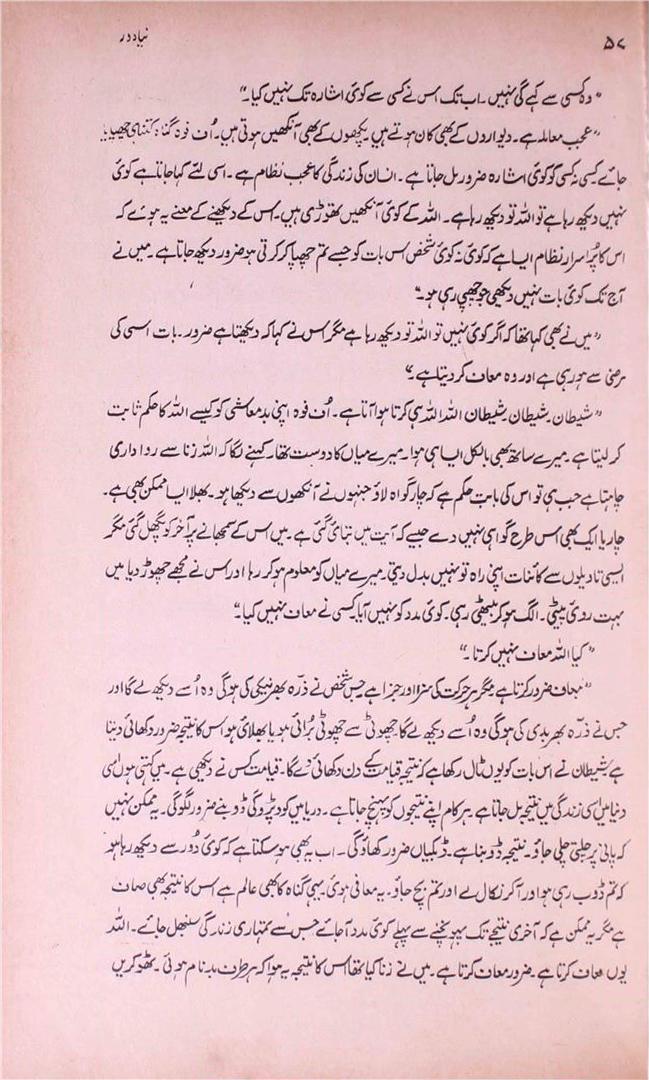 ۵۸
نیا دور
"وہ کسی سے کہے گی نہیں۔ اب تک اس نے کسی سے کوئی اشارہ تک نہیں کیا۔"
"عجب معاملہ ہے۔ دیواروں کے بھی کان ہوتے ہیں پکھوں کے بھی آنکھیں ہوتی ہیں۔ اُف فوہ گناہ کتنا ہی چھپایا
جائے کسی نہ کسی کو کوئی اشارہ ضرور مل جاتا ہے۔ انسان کی زندگی کا عجب نظام ہے۔ اسی لئے کہا جاتا ہے کوئی
نہیں دیکھ رہا ہے تو اللہ تو دیکھ رہا ہے۔ اللہ کے کوئی آنکھیں تھوڑی ہیں۔ اس کے دیکھنے کے معنے یہ ہوئے کہ
اس کا پُر اسرار نظام ایسا ہے کہ کوئی نہ کوئی شخص اس بات کو جسے تم چھپا کر کرتی ہو ضرور دیکھ جاتا ہے۔ میں نے
آج تک کوئی بات نہیں دیکھی جو چھپی رہی ہو۔"
"میں نے بھی کہا تھا کہ اگر کوئی نہیں تو اللہ تو دیکھ رہا ہے مگر اس نے کہا کہ دیکھتا ہے ضرور۔ بات اسی کی
مرضی سے ہو رہی ہے اور وہ معاف کر دیتا ہے۔"
"شیطان۔ شیطان۔ شیطان اللہ اللہ ہی کرتا ہوا آتا ہے۔ اُف فوہ اپنی بدمعاشی کو کیسے اللہ کا حکم ثابت
کر لیتا ہے۔ میرے ساتھ بھی بالکل ایسا ہی ہوا۔ میرے میاں کا دوست تھا۔ کہنے لگا کہ اللہ زنا سے رواداری
چاہتا ہے جب ہی تو اس کی بابت حکم ہے کہ چار گواہ لاؤ جنہوں نے آنکھوں سے دیکھا ہو۔ بھلا ایسا ممکن بھی ہے۔
چار یا ایک بھی اس طرح گواہی نہیں دے جیسے کہ آیت میں بتائی گئی ہے۔ میں اس کے سمجھانے پر آخر کو پگھل گئی مگر
ایسی تاویلوں سے کائنات اپنی راہ تو نہیں بدل دیتی۔ میرے میاں کو معلوم ہو کر رہا اور اس نے مجھے چھوڑ دیا میں
بہت روئی پیٹی۔ الگ ہو کر بیٹھی رہی۔ کوئی مدد کو نہیں آیا۔ کسی نے معاف نہیں کیا۔"
"کیا اللہ معاف نہیں کرتا۔"
"معاف ضرور کرتا ہے مگر ہر حرکت کی سزا اور جزا ہے جس شخص نے ذرّہ بھر نیکی کی ہو گی وہ اُسے دیکھ لے گا اور
جس نے ذرّہ بھر بدی کی ہو گی وہ اُسے دیکھ لے گا۔ چھوٹی سے چھوٹی بُرائی ہو یا بھلائی ہو اس کا نتیجہ ضرور دکھائی دیتا
ہے۔ شیطان نے اس بات کو یوں ٹال رکھا ہے کہ نتیجہ قیامت کے دن دکھائی دے گا۔ قیامت کس نے دیکھی ہے۔ میں کہتی ہوں اسی
دنیا میں اسی زندگی میں نتیجہ مل جاتا ہے۔ ہر کام اپنے نتیجوں کو پہنچ جاتا ہے۔ دریا میں کود پڑو گی ڈوبنے ضرور لگو گی۔ یہ ممکن نہیں
کہ پانی پر چلتی چلی جاؤ۔ نتیجہ ڈوبنا ہے۔ ڈبکیاں ضرور کھاؤ گی۔ اب یہ بھی ہو سکتا ہے کہ کوئی دُور سے دیکھ رہا ہو
کہ تم ڈوب رہی ہو اور آ کر نکال لے اور تم بچ جاؤ۔ یہ معافی ہوئی۔ یہی گناہ کا بھی عالم ہے اس کا نتیجہ بھی صاف
ہے مگر یہ ممکن ہے کہ آخری نتیجے تک پہونچنے سے پہلے کوئی مدد آ جائے جس سے تمہاری زندگی سنبھل جائے۔ اللہ
یوں معاف کرتا ہے۔ ضرور معاف کرتا ہے۔ میں نے زنا کیا تھا اس کا نتیجہ یہ ہوا کہ ہر طرف بدنام ہوئی۔ ٹھوکریں